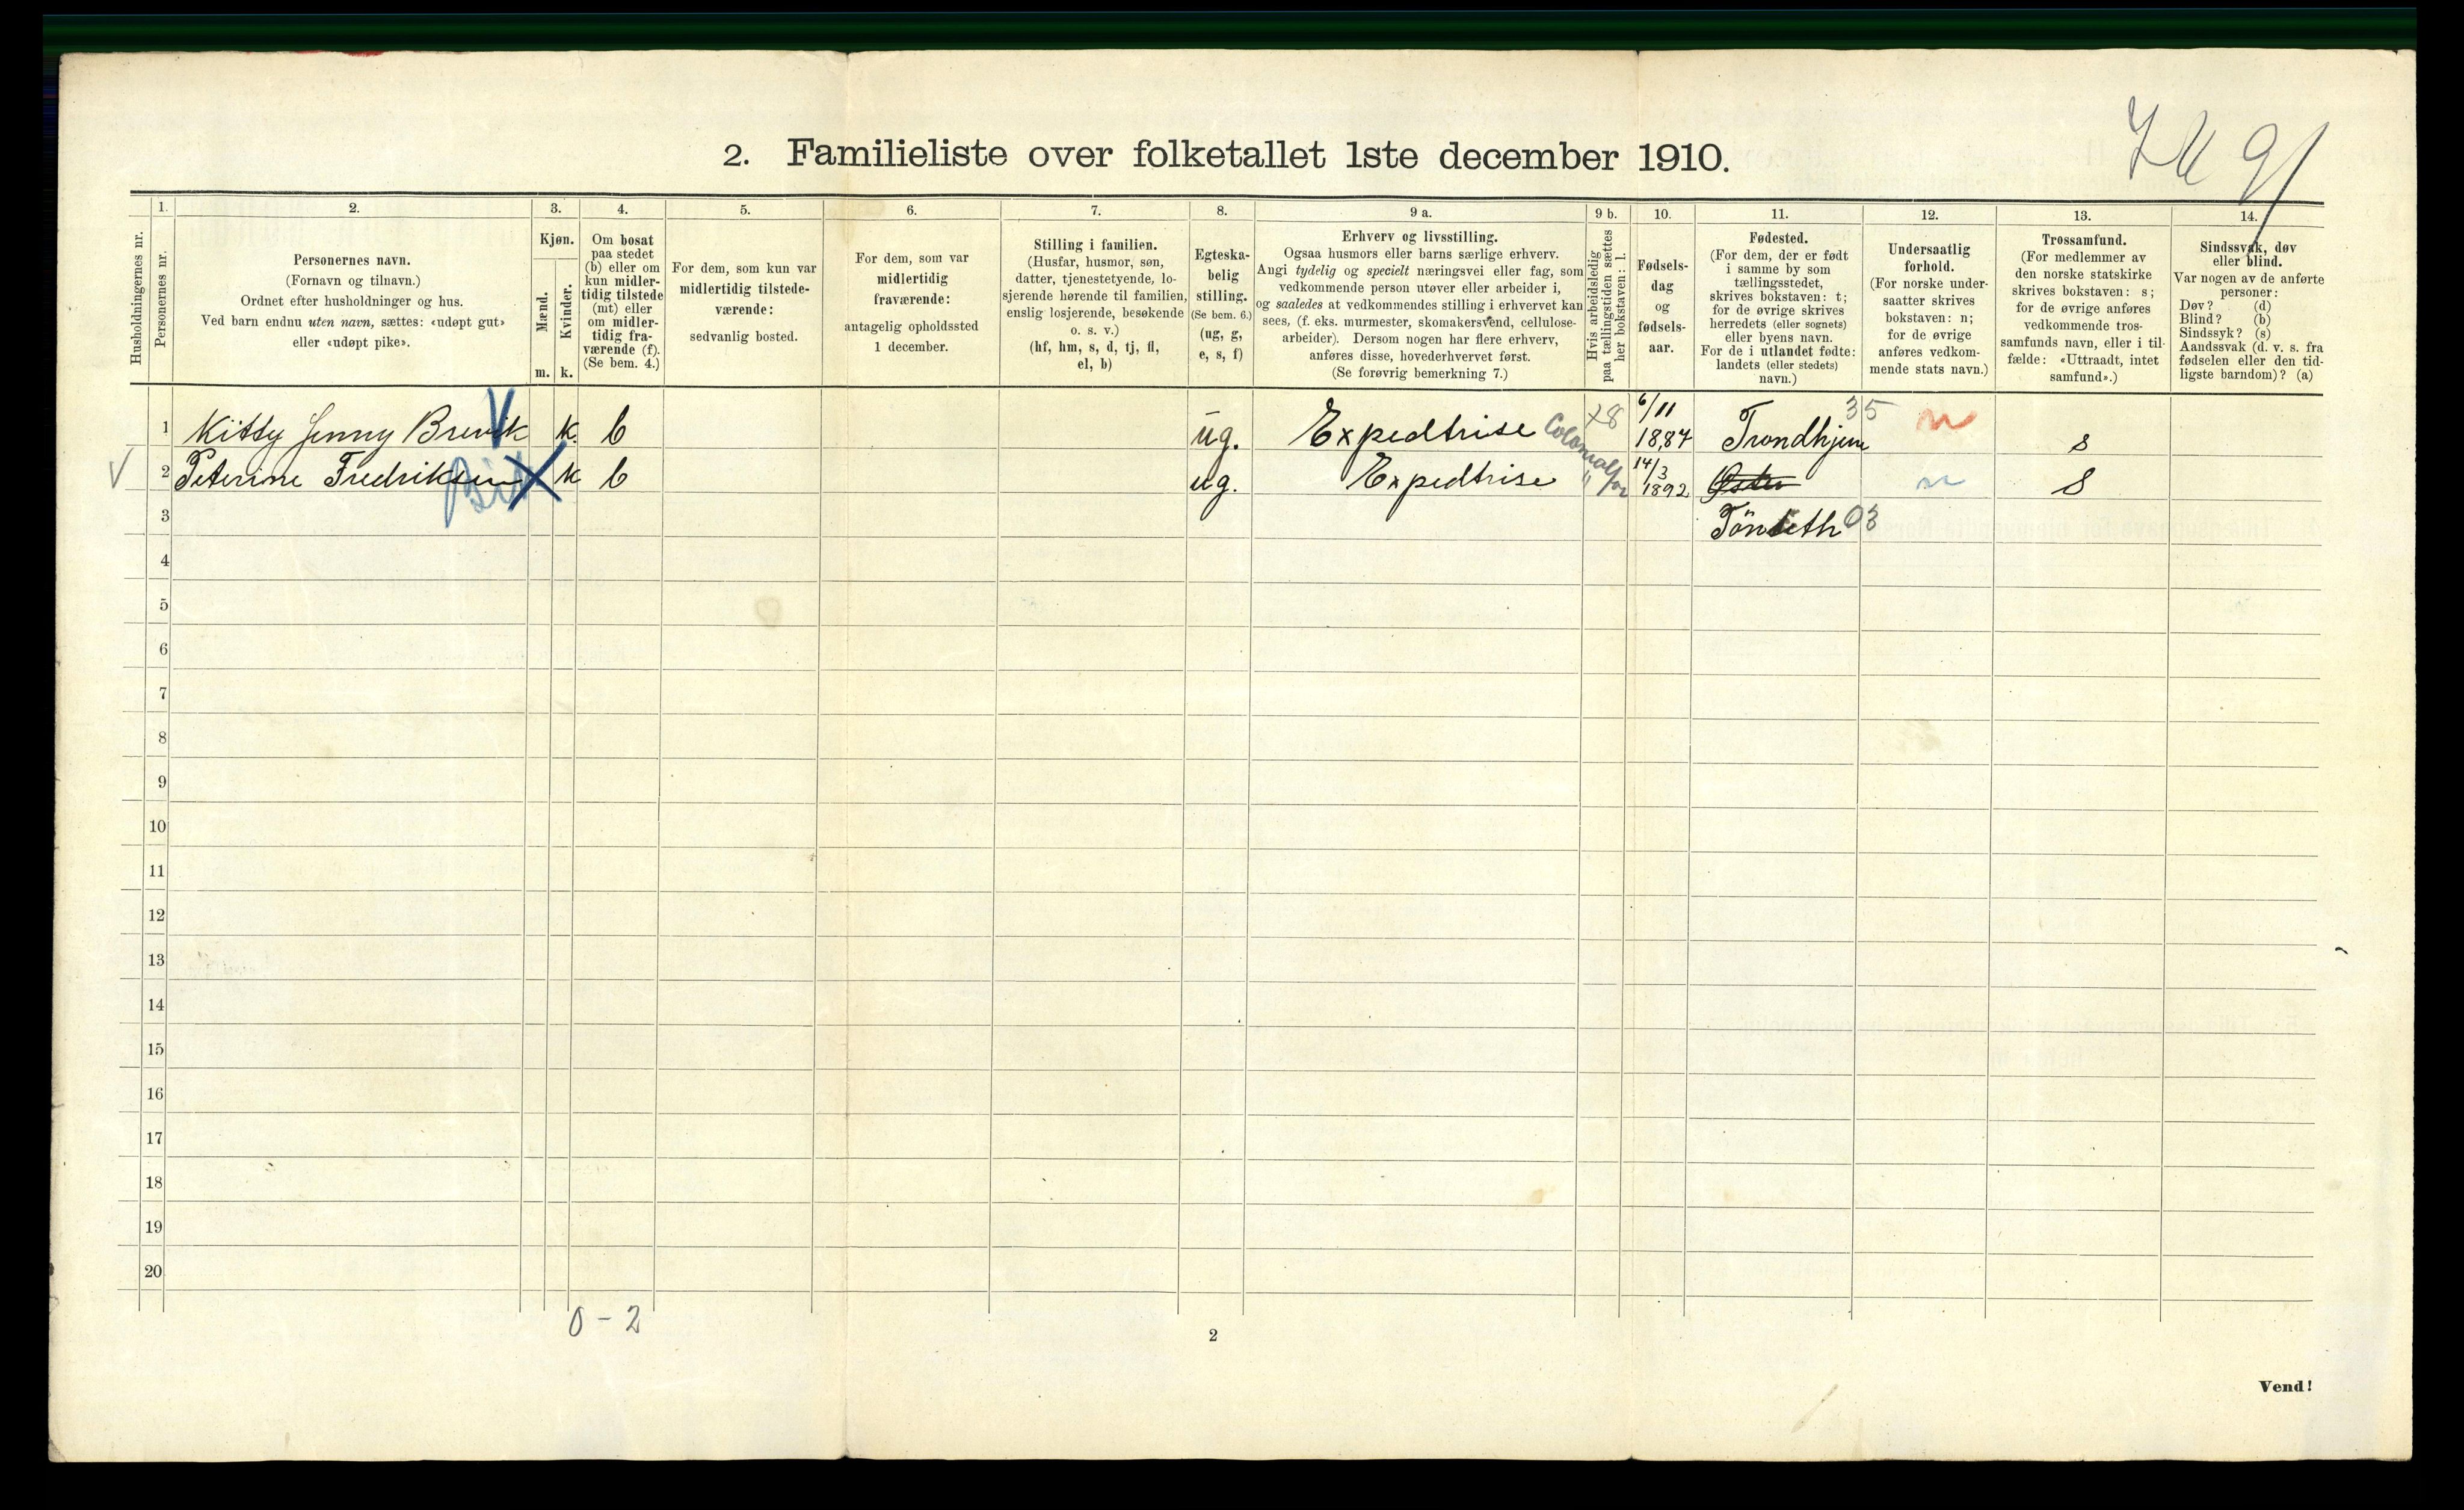 2. Familieliste over folketallet 1ste december 1910.
1. 2. 3. 4. 5. 6. 7. 8. 9 a. 9 b. 10. 11. 12. 13. 14.
Husholdningernes nr.
Personernes nr.
Personernes navn.
(Fornavn og tilnavn.)
Ordnet efter husholdninger og hus.
Ved barn endnu uten navn, sættes: «udøpt gut»
eller «udøpt pike».
Kjøn.
Mænd.
Kvinder.
m. k.
Om bosat
paa stedet
(b) eller om
kun midler-
tidig tilstede
(mt) eller
om midler-
tidig fra-
værende (f).
(Se bem. 4.)
For dem, som kun var
midlertidig tilstede-
værende:
sedvanlig bosted.
For dem, som var
midlertidig
fraværende:
antagelig opholdssted
1 december.
Stilling i familien.
(Husfar, husmor, søn,
datter, tjenestetyende, lo-
sjerende hørende til familien,
enslig losjerende, besøkende
o. s. v.)
(hf, hm, s, d, tj, fl,
el, b)
Egteska-
belig
stilling.
(Se bem. 6.)
(ug, g,
e, s, f)
Erhverv og livsstilling.
Ogsaa husmors eller barns særlige erhverv.
Angi tydelig og specielt næringsvei eller fag, som
vedkommende person utøver eller arbeider i,
og saaledes at vedkommendes stilling i erhvervet kan
sees, (f. eks. murmester, skomakersvend, cellulose-
arbeider). Dersom nogen har flere erhverv,
anføres disse, hovederhvervet først.
(Se forøvrig bemerkning 7.)
Hvis arbeidsledig
paa tællingstiden sættes
her bokstaven: l.
Fødsels-
dag
og
fødsels-
aar.
Fødested.
(For dem, der er født
i samme by som
tællingsstedet,
skrives bokstaven: t;
for de øvrige skrives
herredets (eller sognets)
eller byens navn.
For de i utlandet fødte:
landets (eller stedets)
navn.)
Undersaatlig
forhold.
(For norske under-
saatter skrives
bokstaven: n;
for de øvrige
anføres vedkom-
mende stats navn.)
Trossamfund.
(For medlemmer av
den norske statskirke
skrives bokstaven: s;
for de øvrige anføres
vedkommende tros-
samfunds navn, eller i til-
fælde: «Uttraadt, intet
samfund».)
Sindssvak, døv
eller blind.
Var nogen av de anførte
personer:
Døv? (d)
Blind? (b)
Sindssyk? (s)
Aandssvak (d. v. s. fra
fødselen eller den tid-
ligste barndom)? (a)
1 Kitty Jenny Brevik k. b ug. Expedtrise 6/11 1887 Trondhjem 35 n s
2 Peterine Fredriksen k b ug. Expedtrise " 14/3 1892 n s
3 03
4
5
6
7
8
9
10
11
12
13
14
15
16
17
18
19
20
0 - 2
2
Vend!